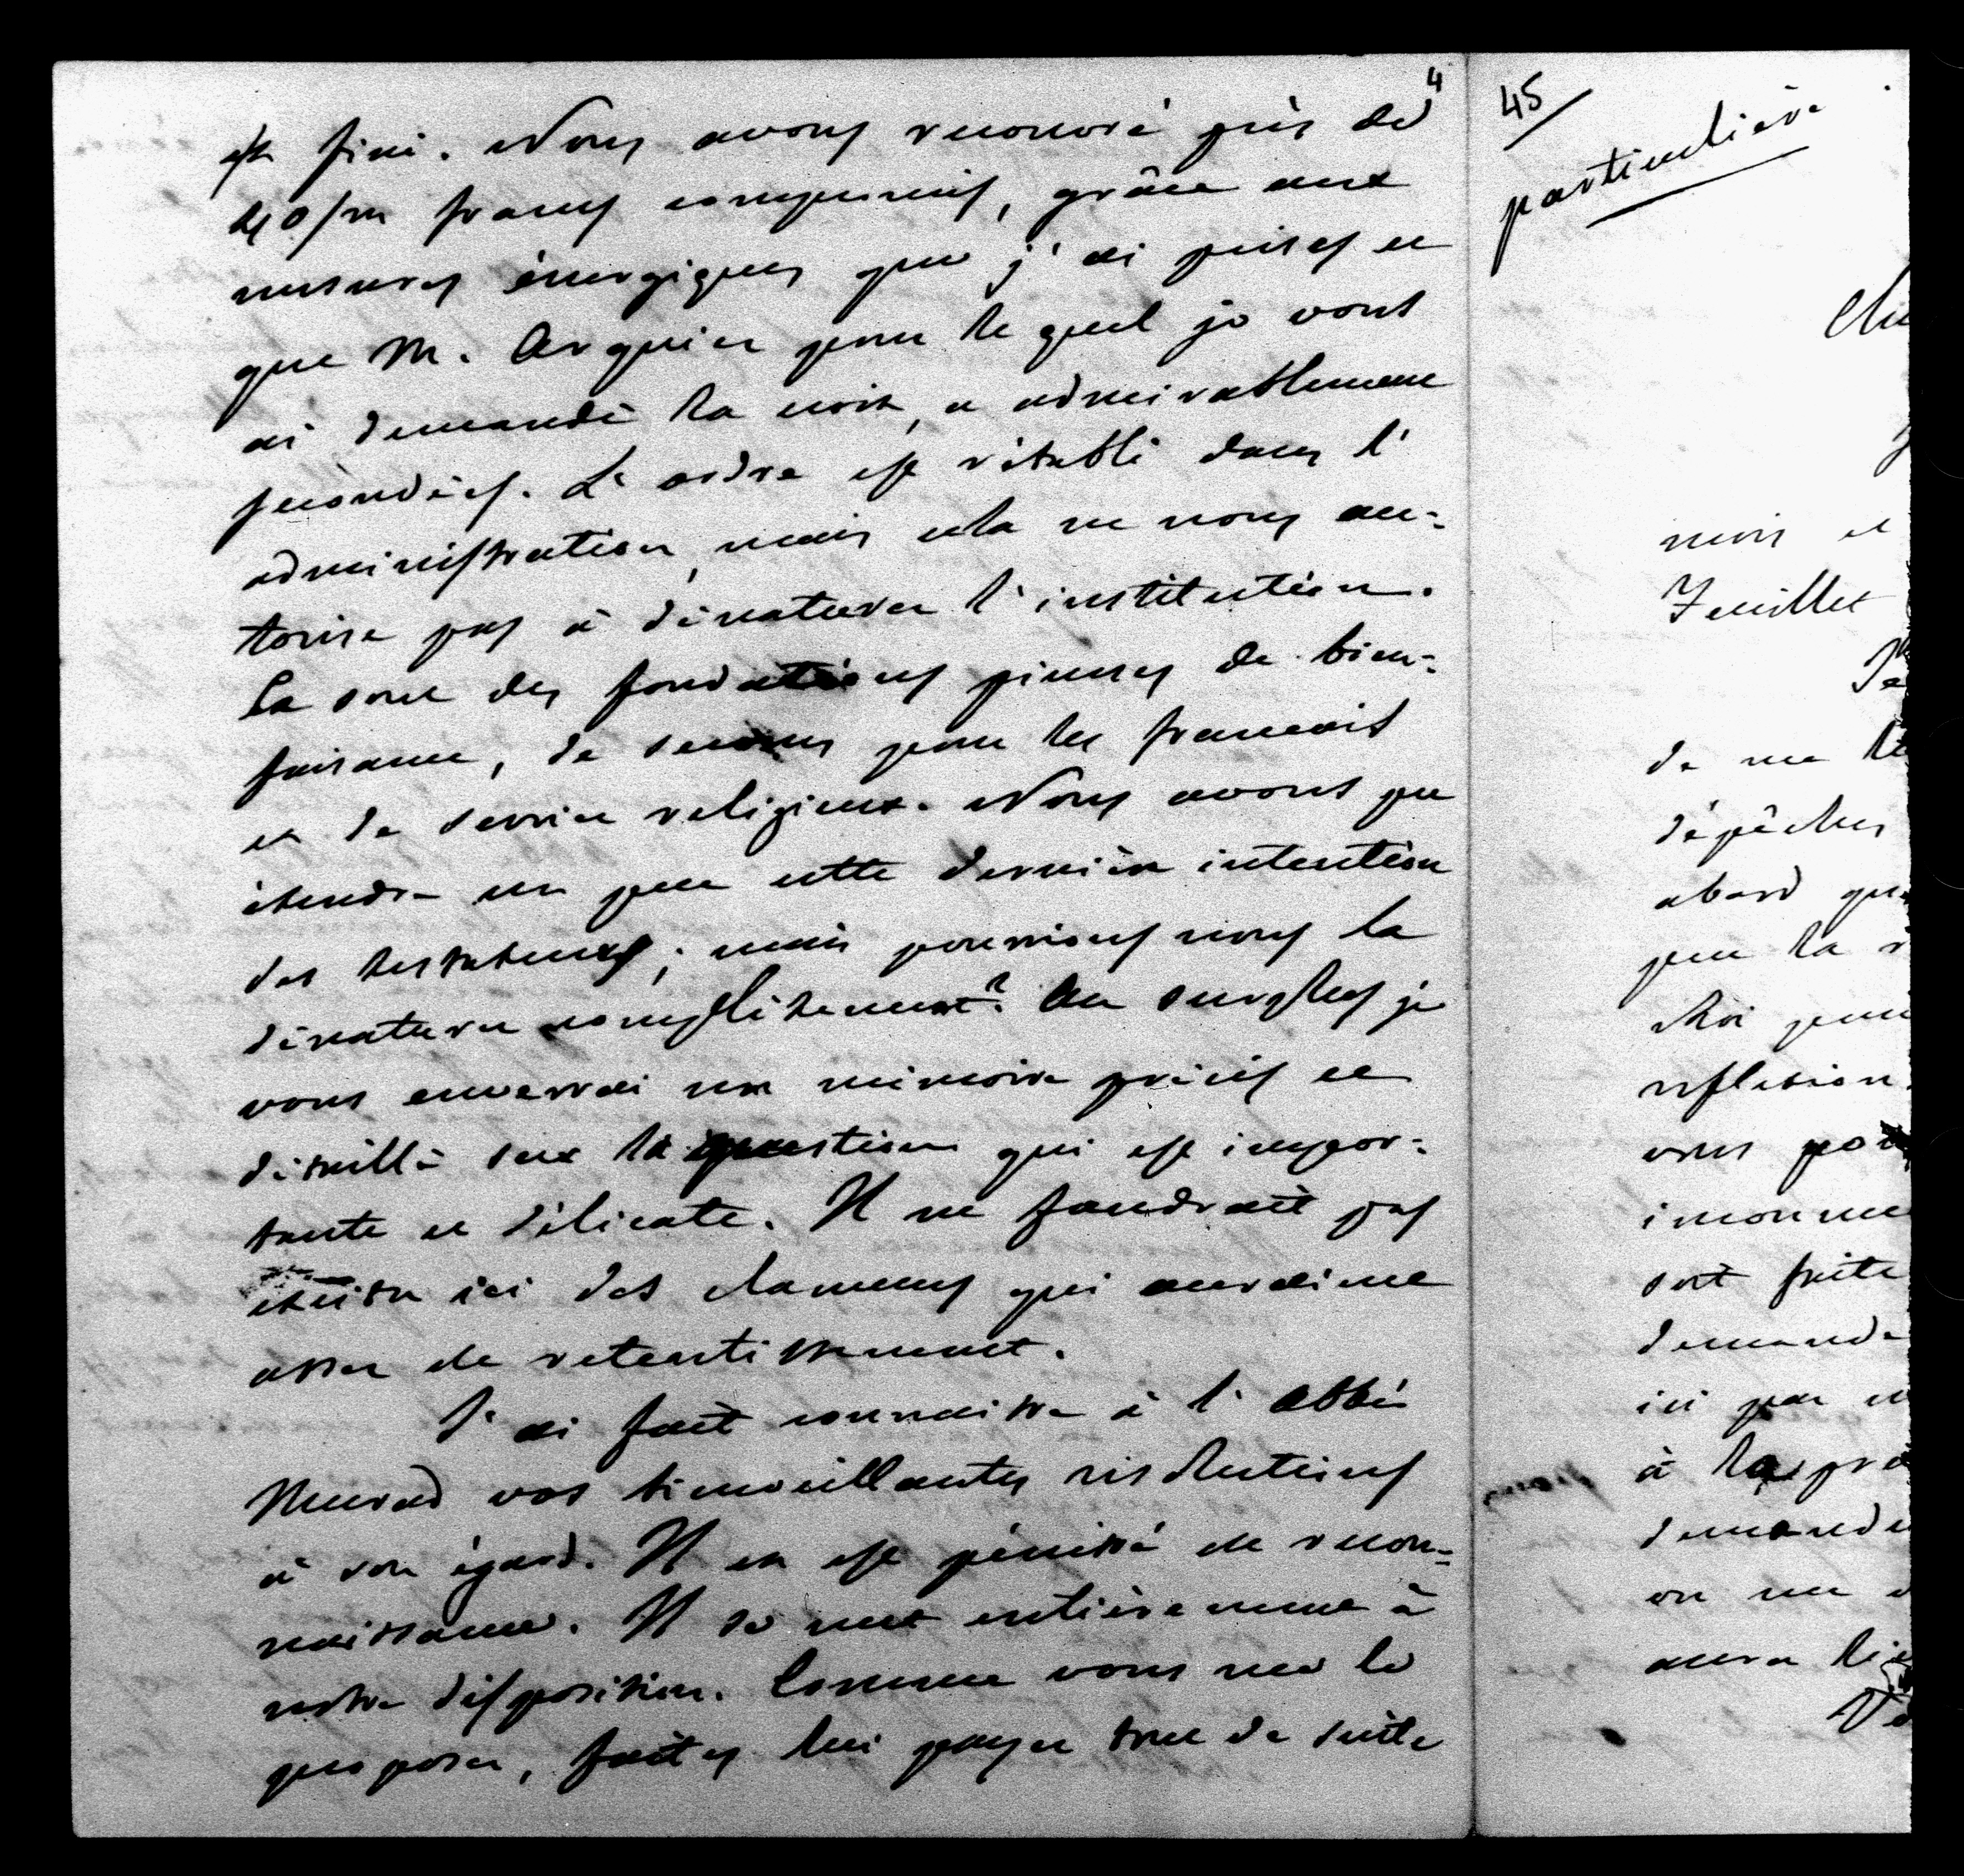 4
est fini. Nous avons recouvré près de
40/m francs compromis, grâce aux
mesures énergiques que j'ai prises et
que M. Arquier pour le quel je vous
ai demandé la croix, a admirablement
secondées. L'ordre est rétabli dans l'
administration, mais cela ne nous au-
torise pas à dénaturer l'institution.
Ce sont des fondations pieuses de bien-
faisance, de secours pour les francais
et de service religieux. Nous avons pu
étendre un peu cette dernière intention
des testateurs; mais pourrions nous la
dénaturer complètement? Au surplus je
vous enverrai un mémoire précis et
détaillé sur la question qui est impor-
tante et délicate. Il ne faudrait pas
exciter ici des clameurs qui auraient
assez de retentissement.
J'ai fait connaitre à l'abbé
Murad vos bienveillantes résolutions
à son égard. Il en est pénétré de recon-
naissance. Il se met entièrement à
notre disposition. Comme vous me le
proposez, faites lui payer tout de suite
45
particulière
mois et
Feuillet
de me
dépêches
abord
pour la
moi pour
reflexion
vous
soit faite
demande
ici par
à la
demande
on me
aura